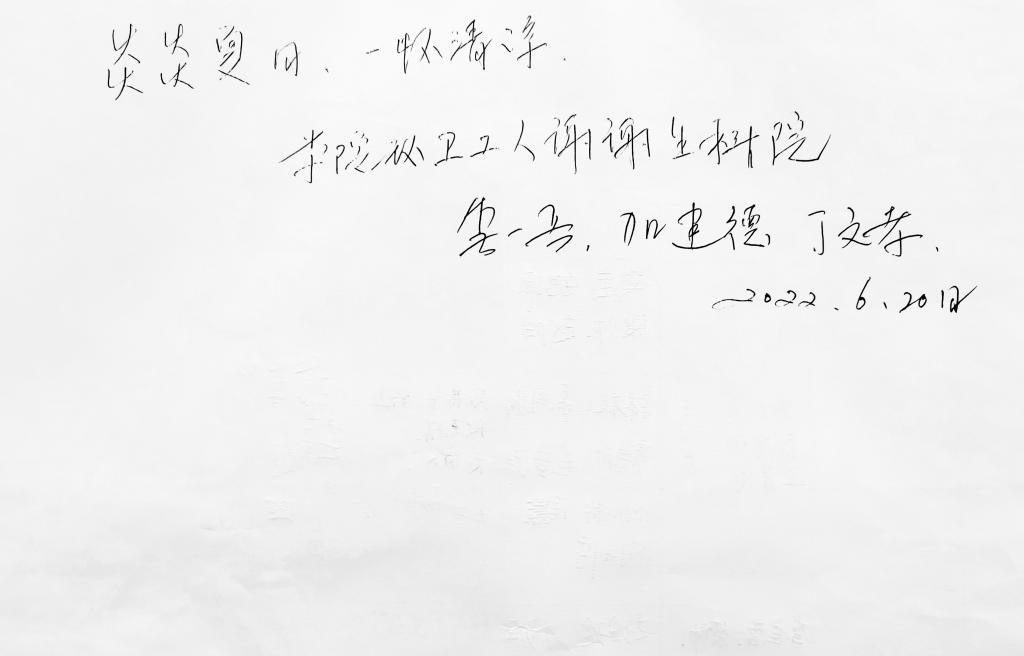 炎炎夏日、一怀清凉.
学院环卫工人谢谢生科院
加建德 丁文孝.
2022.6.20日